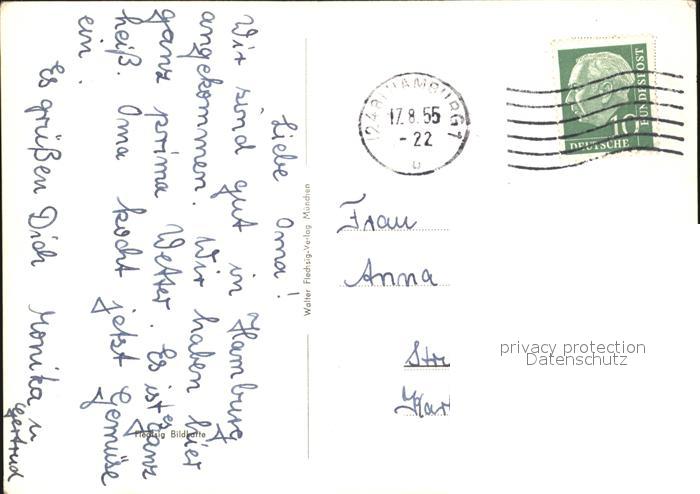 Liebe Oma!
Wir sind gut in Hamburg
angekommen. Wir haben hier
ganz prima Wetter. Es ist ganz
heiß. Oma kocht jetzt Gemüse
ein.
Es grüßen Dich Monika u
Gertrud
Walter Flechsig-Verlag München
Flechsig Bildkarte
(24a) HAMBURG 1
17.8.55
- 22
u
DEUTSCHE
BUNDESPOST
10
Frau
Anna
Str
privacy protection
Datenschutz